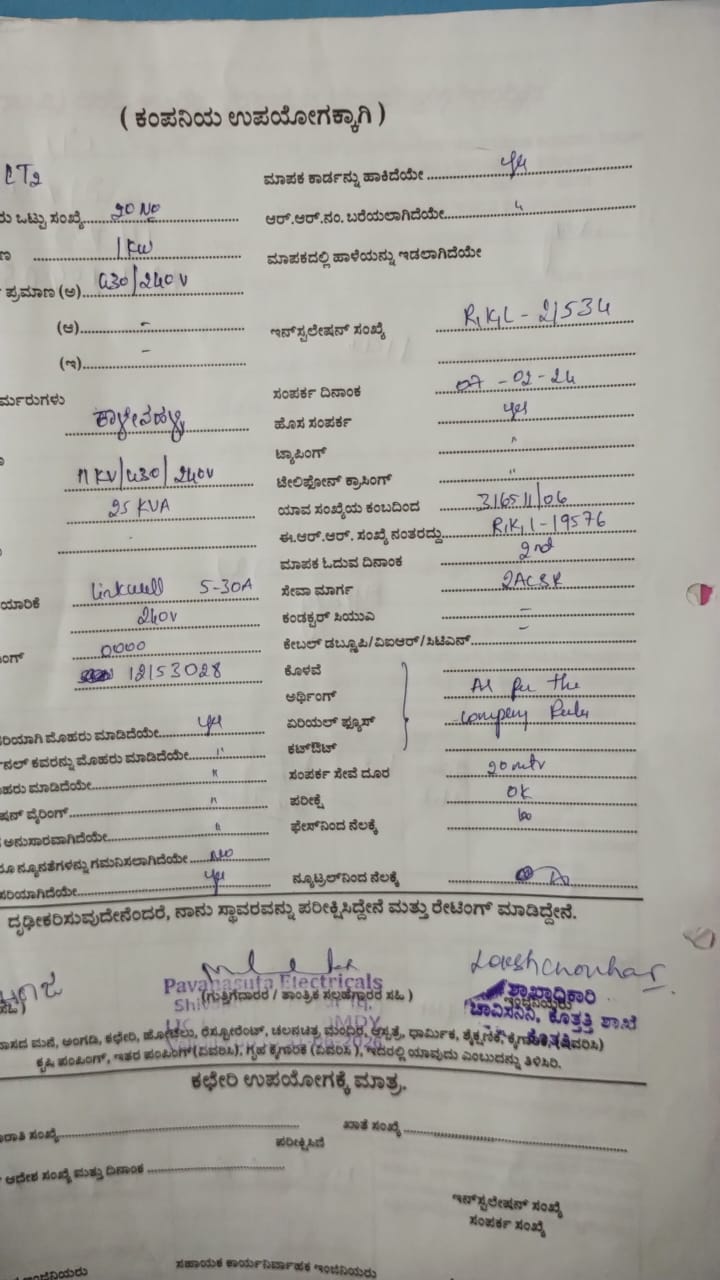 ( ಕಂಪನಿಯ ಉಪಯೋಗಕ್ಕಾಗಿ )
LT2 ಮಾಪಕ ಕಾರ್ಡನ್ನು ಹಾಕಿದೆಯೇ yes
ಒಟ್ಟು ಸಂಖ್ಯೆ ಆರ್.ಆರ್.ನಂ. ಬರೆಯಲಾಗಿದೆಯೇ "
1 KW ಮಾಪಕದಲ್ಲಿ ಹಾಳೆಯನ್ನು ಇಡಲಾಗಿದೆಯೇ
ಪ್ರಮಾಣ (ಅ) 430/240V
(ಆ) - ಇನ್‌ಸ್ಟಲೇಷನ್ ಸಂಖ್ಯೆ 21534
(ಇ) -
ರ್ಮರುಗಳು ಸಂಪರ್ಕ ದಿನಾಂಕ 07-02-24
ಹೊಸ ಸಂಪರ್ಕ yes
ಟ್ಯಾಪಿಂಗ್ "
11 KV/430/240V ಟೇಲಿಫೋನ್ ಕ್ರಾಸಿಂಗ್ "
25 KVA ಯಾವ ಸಂಖ್ಯೆಯ ಕಂಬದಿಂದ
ಈ.ಆರ್.ಆರ್. ಸಂಖ್ಯೆ ನಂತರದ್ದು 19576
ಮಾಪಕ ಓದುವ ದಿನಾಂಕ 2nd
ಯಾರಿಕೆ Linkwell 5-30A ಸೇವಾ ಮಾರ್ಗ 2ACSR
240V ಕಂಡಕ್ಟರ್ ಸಿಯುಎ -
ಂಗ್ 0000 ಕೇಬಲ್ ಡಬ್ಲ್ಯೂಪಿ/ವಿಐಆರ್/ಸಿಟಿಎಸ್ -
12153028 ಕೊಳವೆ
ಅರ್ಥಿಂಗ್ As per the
ರಿಯಾಗಿ ಮೊಹರು ಮಾಡಿದೆಯೇ yes ಏರಿಯಲ್ ಫ್ಯೂಸ್ company Rules
ನಲ್ ಕವರನ್ನು ಮೊಹರು ಮಾಡಿದೆಯೇ " ಕಟ್‌ಔಟ್
ಹರು ಮಾಡಿದೆಯೇ " ಸಂಪರ್ಕ ಸೇವೆ ದೂರ
ಷನ್ ವೈರಿಂಗ್ " ಪರೀಕ್ಷೆ OK
ಅನುಸಾರವಾಗಿದೆಯೇ " ಫೇಸ್‌ನಿಂದ ನೆಲಕ್ಕೆ
ನ್ಯೂನತೆಗಳನ್ನು ಗಮನಿಸಲಾಗಿದೆಯೇ No
ಸರಿಯಾಗಿದೆಯೇ yes ನ್ಯೂಟ್ರಲ್‌ನಿಂದ ನೆಲಕ್ಕೆ
ದೃಢೀಕರಿಸುವುದೇನೆಂದರೆ, ನಾನು ಸ್ಥಾವರವನ್ನು ಪರೀಕ್ಷಿಸಿದ್ದೇನೆ ಮತ್ತು ರೇಟಿಂಗ್ ಮಾಡಿದ್ದೇನೆ.
Pavanasuta Electricals
(ಗುತ್ತಿಗೆದಾರರ / ತಾಂತ್ರಿಕ ಸಲಹೆಗಾರರ ಸಹಿ) ಶಾಖಾಧಿಕಾರಿ
ಚಾವಿಸನಿನಿ, ಕೊತ್ತತ್ತಿ ಶಾಖೆ
ಕೊತ್ತತ್ತಿ
ವಾಸದ ಮನೆ, ಅಂಗಡಿ, ಕಛೇರಿ, ಹೋಟೆಲು, ರೆಸ್ಟೋರೆಂಟ್, ಚಲನಚಿತ್ರ ಮಂದಿರ, ಆಸ್ಪತ್ರೆ, ಧಾರ್ಮಿಕ, ಶೈಕ್ಷಣಿಕ, ಕೈಗಾರಿಕೆ, (ವಿವರಿಸಿ)
ಕೃಷಿ ಪಂಪಿಂಗ್, ಇತರ ಪಂಪಿಂಗ್ (ವಿವರಿಸಿ), ಗೃಹ ಕೈಗಾರಿಕೆ (ವಿವರಿಸಿ), ಇದರಲ್ಲಿ ಯಾವುದು ಎಂಬುದನ್ನು ತಿಳಿಸಿರಿ.
ಕಛೇರಿ ಉಪಯೋಗಕ್ಕೆ ಮಾತ್ರ.
ಸಂಖ್ಯೆ ಖಾತೆ ಸಂಖ್ಯೆ
ಪರೀಕ್ಷಿಸಿದೆ
ಆದೇಶ ಸಂಖ್ಯೆ ಮತ್ತು ದಿನಾಂಕ
ಇನ್‌ಸ್ಟಲೇಷನ್ ಸಂಖ್ಯೆ
ಸಂಪರ್ಕ ಸಂಖ್ಯೆ
ಇಂಜಿನಿಯರು ಸಹಾಯಕ ಕಾರ್ಯನಿರ್ವಾಹಕ ಇಂಜಿನಿಯರು